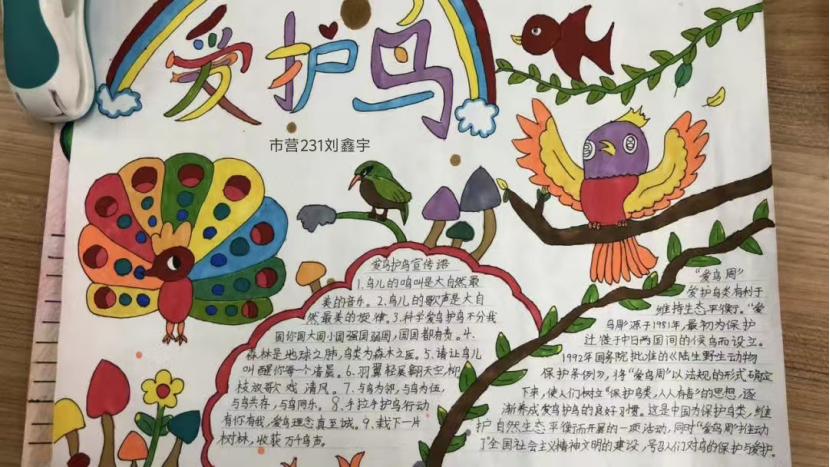 爱护鸟
市营231刘鑫宇
爱鸟护鸟宣传语
1.鸟儿的鸣叫是大自然最
美的音乐。2.鸟儿的歌声是大自
然最美的旋律。3.科学爱鸟护鸟不分我
国你国大国小国强国弱国,国国都有责。4.
森林是地球之肺,鸟类为森木之医。5.请让鸟儿
叫醒你每个清晨。6.羽翼轻展翱天空,柳
枝放歌戏清风。7.与鸟为邻,与鸟为伍,
与鸟共存,与鸟同乐。8.手拉手护鸟行动
有你有我,爱鸟理念真至诚。9.栽下一片
树林,收获万千鸟声。
“爱鸟周”
爱护鸟类有利于
维持生态平衡。“爱
鸟周”源于1981年,最初为保护
迁徙于中日两国间的候鸟而设立。
1992年国务院批准的《陆生野生动物
保护条例》,将“爱鸟周”以法规的形式确定
下来,使人们树立“保护鸟类,人人有责”的思想,逐
渐养成爱鸟护鸟的良好习惯。这是中国为保护鸟类,维
护自然生态平衡而开展的一项活动,同时“爱鸟周”推动
了全国社会主义精神文明的建设,号召人们对鸟的保护与爱护。